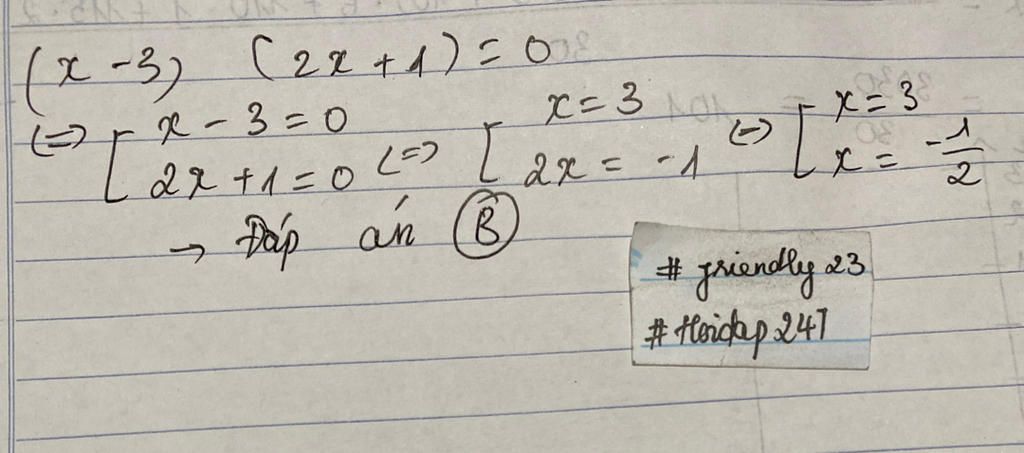 (x - 3) (2x + 1) = 0
(=) [ x - 3 = 0 (=) [ x = 3 (-) [ x = 3
2x + 1 = 0 2x = -1 x = -1/2
→ Đáp án B
# friendly 23
# Hoidap 247